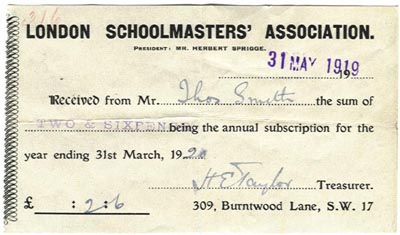 3/6
LONDON SCHOOLMASTERS' ASSOCIATION.
PRESIDENT: MR. HERBERT SPRIGGE.
31 MAY 1919
19
Received from Mr. Thos Smith the sum of
TWO & SIXPENCE being the annual subscription for the
year ending 31st March, 1920
H E Taylor Treasurer.
£ : 2 : 6 309, Burntwood Lane, S.W. 17